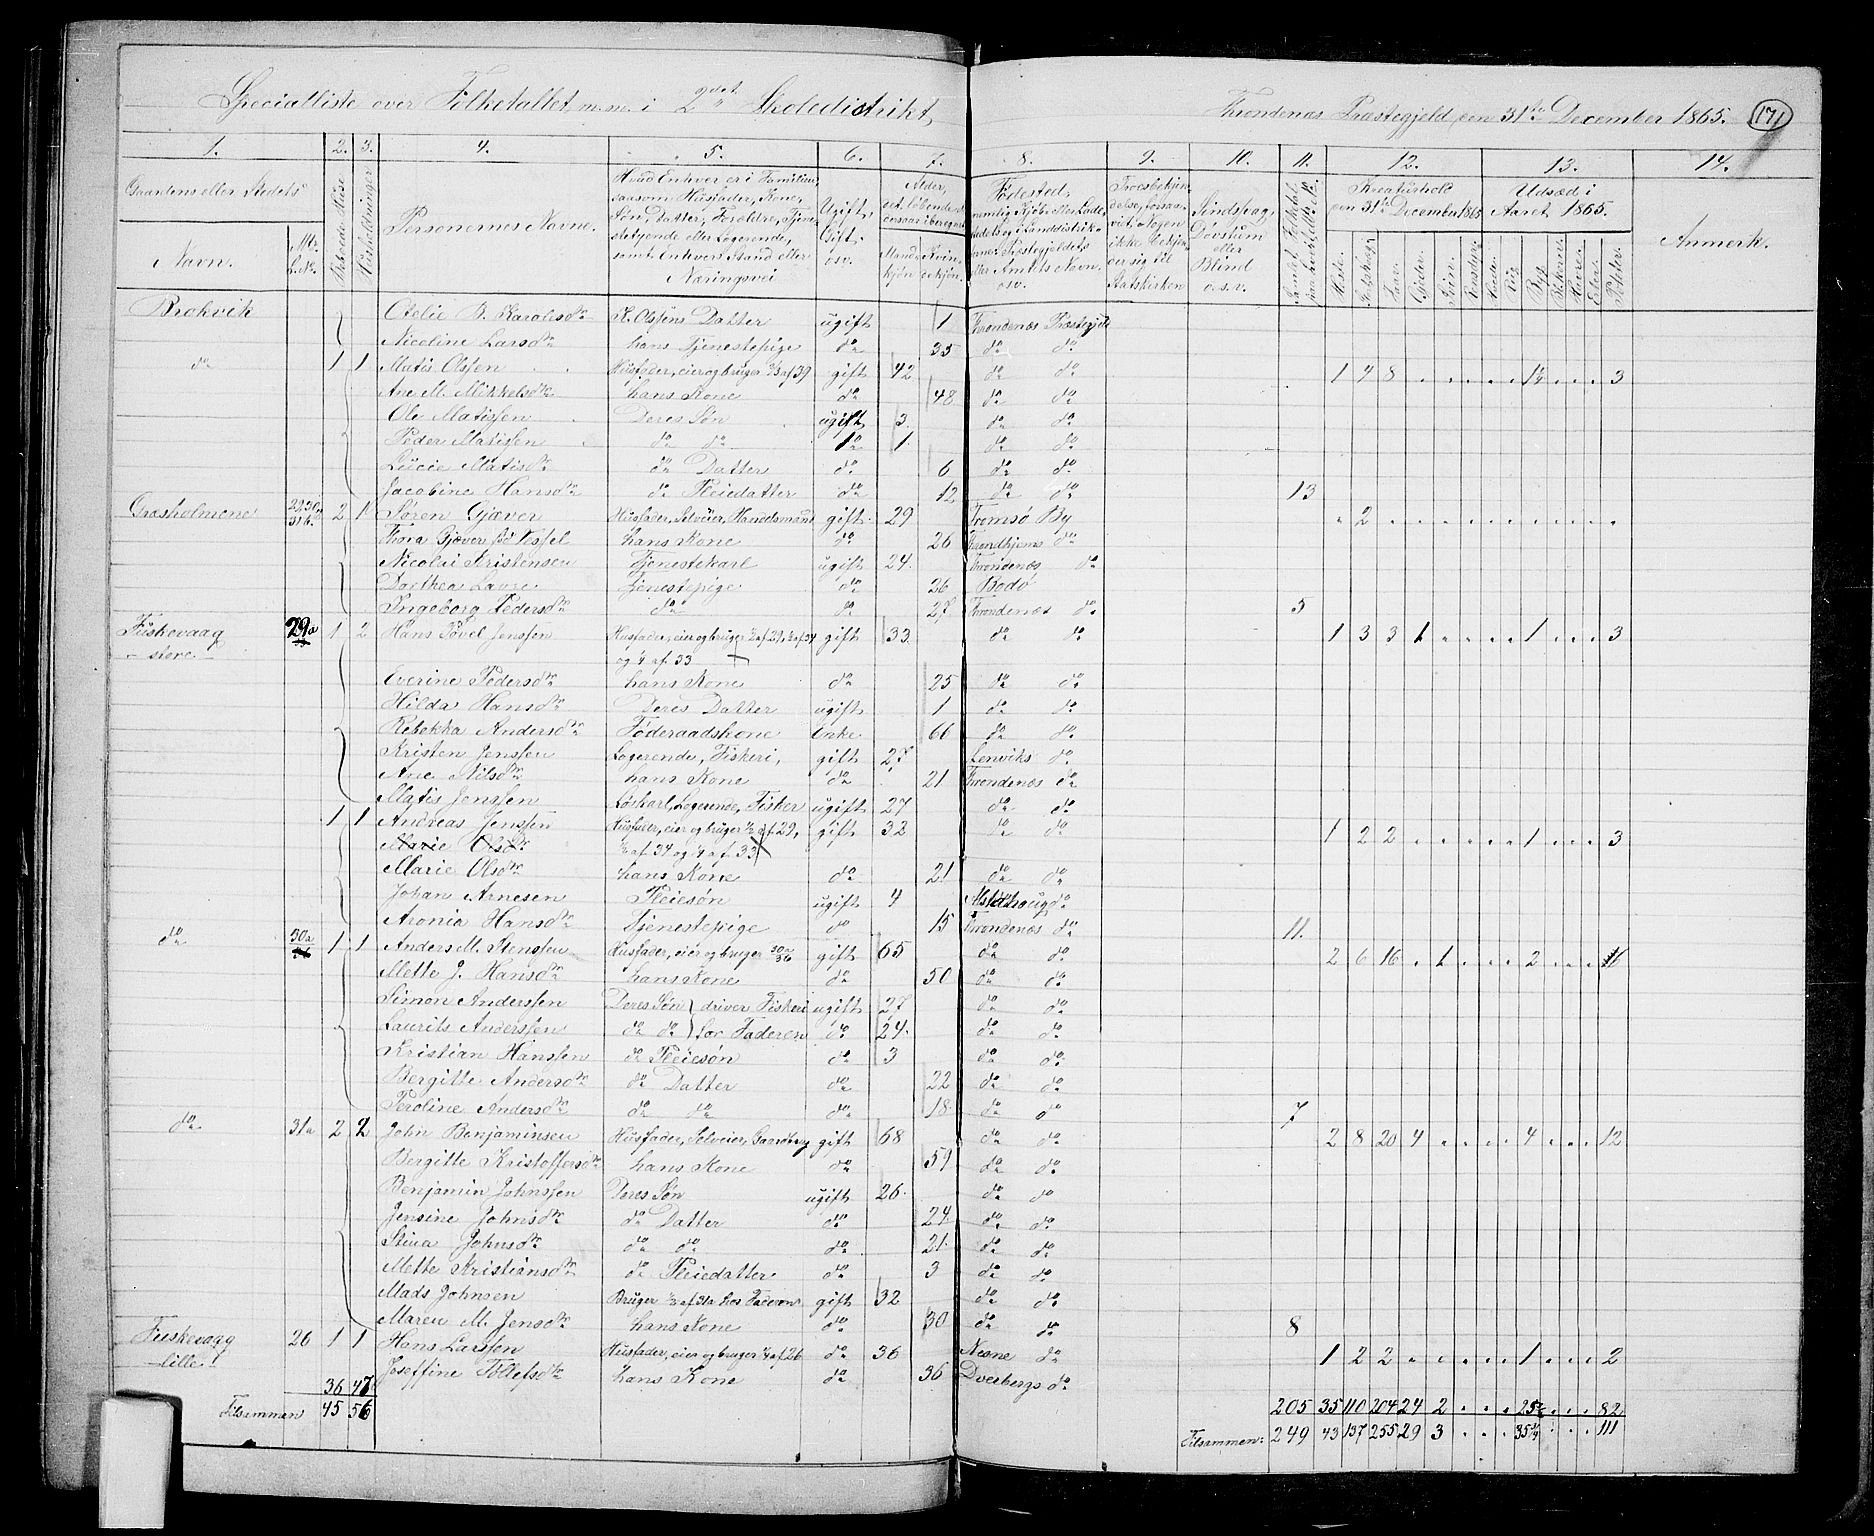 Specialliste over Folketallet m.m. i 2det Skoledistrikt, Throndenæs Præstegjeld den 31te December 1865. 171
1. 2. 3. 4. 5. 6. 7. 8. 9. 10. 11. 12. 13. 14.
Gaardens eller Stedets Navn. Mtr. L.No. Beboede Huse Husholdninger Personernes Navne. Hvad Enhver er i Familien, saasom Husfader, Kone, Søn, Datter, Forældre, Tjenestetyende eller Logerende, samt Enhvers Stand eller Næringsvei Ugift, Gift, osv. Alder, det løbende Aldersaar iberegnet Mandkjøn Kvindekjøn Fødested, Troesbekjendelse, forsaavidt Nogen ikke bekjender sig til Statskirken Sindssvag, Døvstum eller Blind o.s.v. Kreaturhold den 31te December 1865 Udsæd i Aaret 1865. Anmerk.
Brokvik Otelie B. Karolesdtr K. Olssens Datter ugift 1 Throndenæs Præstegjeld
Nicoline Larsdtr hans Tjenestepige do 35 do do
do 1 1 Matis Olssen Husfader, eier og bruger 2/3 af 39 gift 42 do do 1 4 8 . . . . . 1½ . . . 3
Ane M. Mikkelsdtr hans Kone do 48 do do
Ole Matissen Deres Søn ugift 3 do do
Peder Matissen do do do 1 do do
Lucie Matisdtr do Datter do 6 do do
Jacobine Hansdtr do Pleiedatter do 12 do do 13
Græsholmene 2 1 Søren Gjæver Husfader, Selveier, Handelsmand gift 29 Tromsø By . 2 . . . . . . . . . . .
Thora Gjæver hans Kone do 26 Throndhjems do
Nicolai Kristensen Tjenestekarl ugift 24 Throndenæs do
Dorthea Tjenestepige do 26 Bodø
Ingeborg Pedersdtr do do 27 Throndenæs do 5
Fuskevaag 29a 1 2 Hans Povel Jenssen Husfader, eier og bruger ½ af 29, ½ af 34 gift 33 do do 1 3 3 1 . . . . 1 . . . 3
store og 4 af 33
Everine Pedersdtr hans Kone do 25 do do
Hilda Hansdtr Deres Datter ugift 1 do do
Rebekka Andersdtr Føderaadskone Enke 66 do do
Kristen Jenssen Logerende, Fiskeri, gift 27 Lenviks do
Ane Nilsdtr hans Kone do 21 Throndenæs do
Matis Jenssen Løskarl, Logerende, Fisker ugift 27 do do
1 1 Andreas Jenssen Husfader, eier og bruger ½ af 29, gift 32 do do 1 2 2 . . . . . 1 . . . 3
Marie Olsdtr ½ af 34 og 4 af 33
Marie Olsdtr hans Kone do 21 do do
Johan Arnesen Pleiesøn ugift 4 Alstahoug do
Aronia Hansdtr Tjenestepige do 15 Throndenæs do 11.
do 30a 1 1 Anders M. Stenssen Husfader, eier og bruger gift 65 do do 2 6 16 . 1 . . . 2 . . . 16
Mette J. Hansdtr hans Kone do 50 do do
Simon Anderssen Deres Søn driver Fiskeri ugift 27 do do
Laurits Anderssen do do for Faderen do 24 do do
Kristian Hanssen do Pleiesøn do 3 do do
Bergitte Andersdtr do Datter do 22 do do
Peroline Andersdtr do do do 18 do do 7
do 31a 2 2 John Benjaminsen Husfader, Selveier, Gaardbrug gift 68 do do 2 8 20 4 . . . . 4 . . . 12
Bergitte Kristoffersdtr hans Kone do 59 do do
Benjamin Johnssen Deres Søn ugift 26 do do
Jensine Johnsdtr do Datter do 24 do do
Stina Johnsdtr do do do 21 do do
Mette Kristiansdtr do Pleiedatter do 3 do do
Mads Johnsen Bruger ⅓ af 31a hos Faderen gift 32 do do
Maren M. Jensdtr hans Kone do 30 do do 8
Fuskevaag 26 1 1 Hans Larssen Husfader, eier og bruger ¼ af 26 do 36 Næsne do 1 2 2 . . . . . 1 . . . 2
lille Joseffine Tollefsdtr hans Kone do 36 Dverbergs do
36 47 205 35 110 204 24 2 . . . 25½ . . . 82
Tilsammen 45 56 Tilsammen: 249 43 137 255 29 3 . . . 35¾ . . . 111